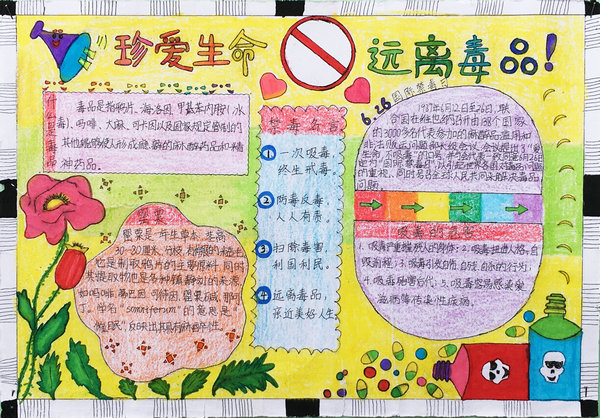 珍爱生命
远离毒品!
什么是毒品
毒品是指鸦片、海洛因、甲基苯丙胺(冰
毒)、吗啡、大麻、可卡因以及国家规定管制的
其他能够使人形成瘾癖的麻醉药品和精
神药品。
罂粟
罂粟是一年生草本,茎高
30-80厘米,分枝,有
也是制取鸦片的主要原料,同时
其提取物也是多种镇静剂的来源,
如吗啡、蒂巴因、可待因、罂粟碱、那可
丁。学名"somniferum"的意思是
"催眠",反映出其具有麻醉性。
禁毒
1 一次吸毒,
终生戒毒。
2 防毒反毒,
人人有责。
3 扫除毒害,
利国利民。
4 远离毒品,
亲近美好人生。
6.26国际禁毒日
1987年6月12日至26日,联
合国在维也纳召开由138个国家
的3000多名代表参加的麻醉品滥用和
非法贩运问题部长级会议。会议提出了"爱
生命,不吸毒"的口号,
的重视,同时号召全球人民共同来解决毒品
问题。
吸毒的危害
1.吸毒严重摧残人的身体;2.吸毒扭曲人格,自
毁前程;3.吸毒引发自伤、自残、自杀的行为;
4.吸毒祸害后代;5.吸毒容易感染爱
滋病等传染性疾病。